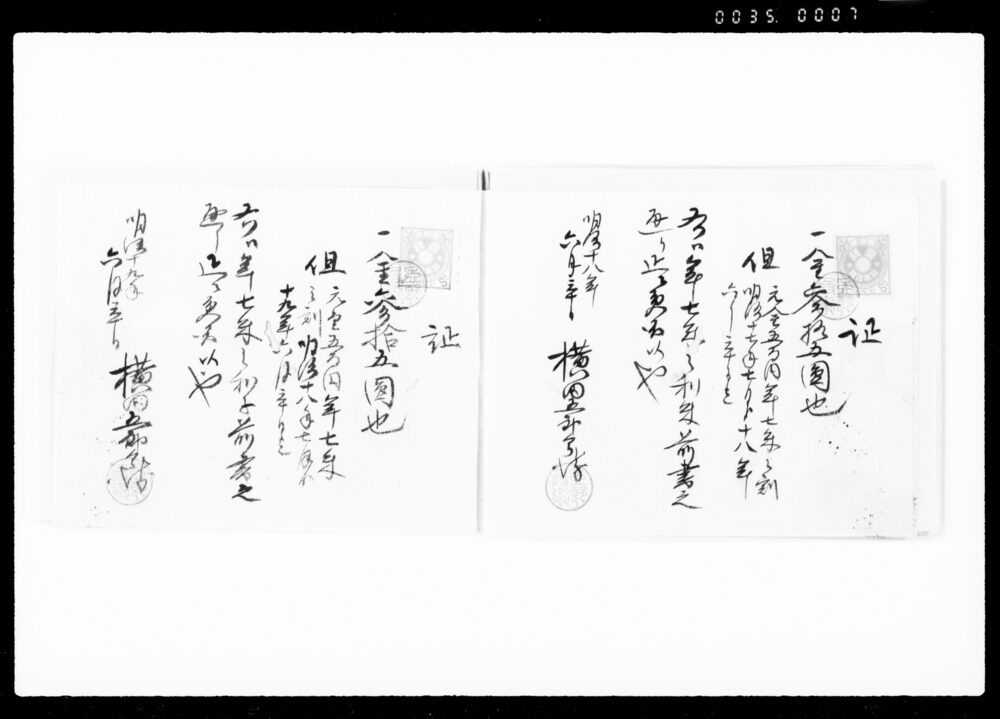 0035.0007
証
一金参拾五圓也
但 元金五百円年七朱之割
明治十七年七月ゟ十八年
六月三十日迄
右ハ年七朱之利朱前書之
通り正ニ受取候也
明治十八年
六月三十日
横田五郎兵衛
証
一金参拾五圓也
但 元金五百円年七朱
之割 明治十八年七月ゟ
十九年六月三十日迄
右ハ年七朱之利子前書之
通り正ニ受取候也
明治十九年
六月三十日
横田五郎兵衛